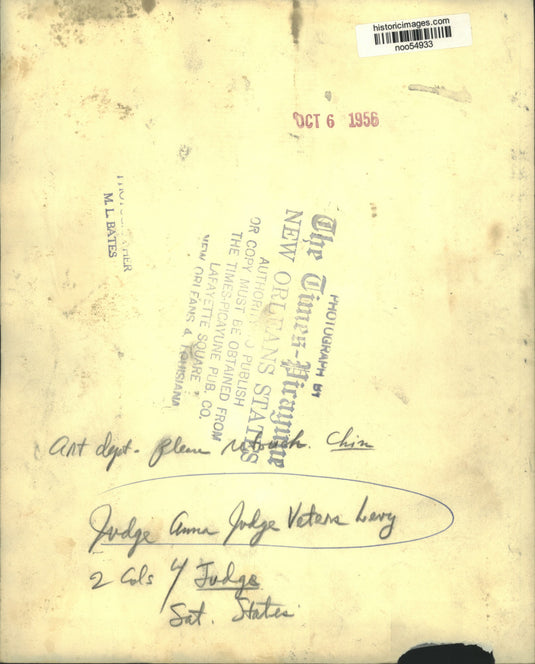 historicimages.com
noo54933
OCT 6 1956
PHOTOGRAPHER
M. L. BATES
PHOTOGRAPH BY
The Times-Picayune
NEW ORLEANS STATES
AUTHORITY TO PUBLISH
OR COPY MUST BE OBTAINED FROM
THE TIMES-PICAYUNE PUB. CO.
LAFAYETTE SQUARE
NEW ORLEANS LOUISIANA
Art dept. please retouch. Chin
Judge Anna Judge Veters Levy
2 Cols Judge
Sat. States